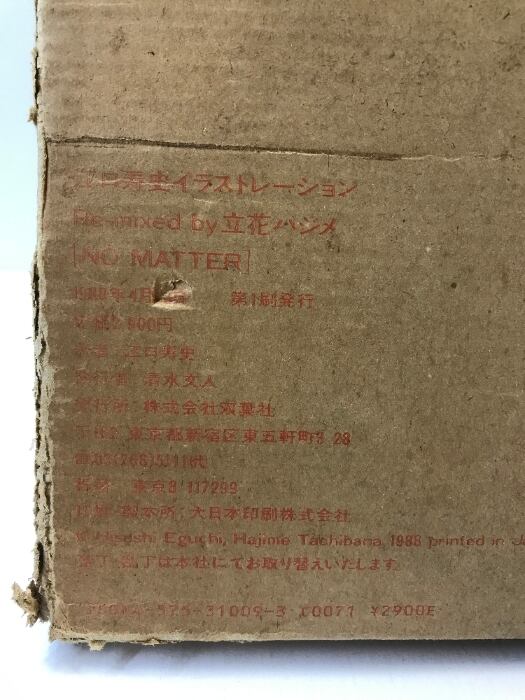 江口寿史イラストレーション
Re-mixed by 立花ハジメ
[NO MATTER]
1988年4月 第1刷発行
著者 江口寿史
発行者 清水文人
発行所 株式会社双葉社
東京都新宿区東五軒町3 28
電03(268)5111代
振替 東京8 117299
印刷 製本所:大日本印刷株式会社
© Hisashi Eguchi, Hajime Tachibana, 1988 printed in
落丁・乱丁は本社にてお取り替えいたします
575-31009-3 C0071 ¥2900E